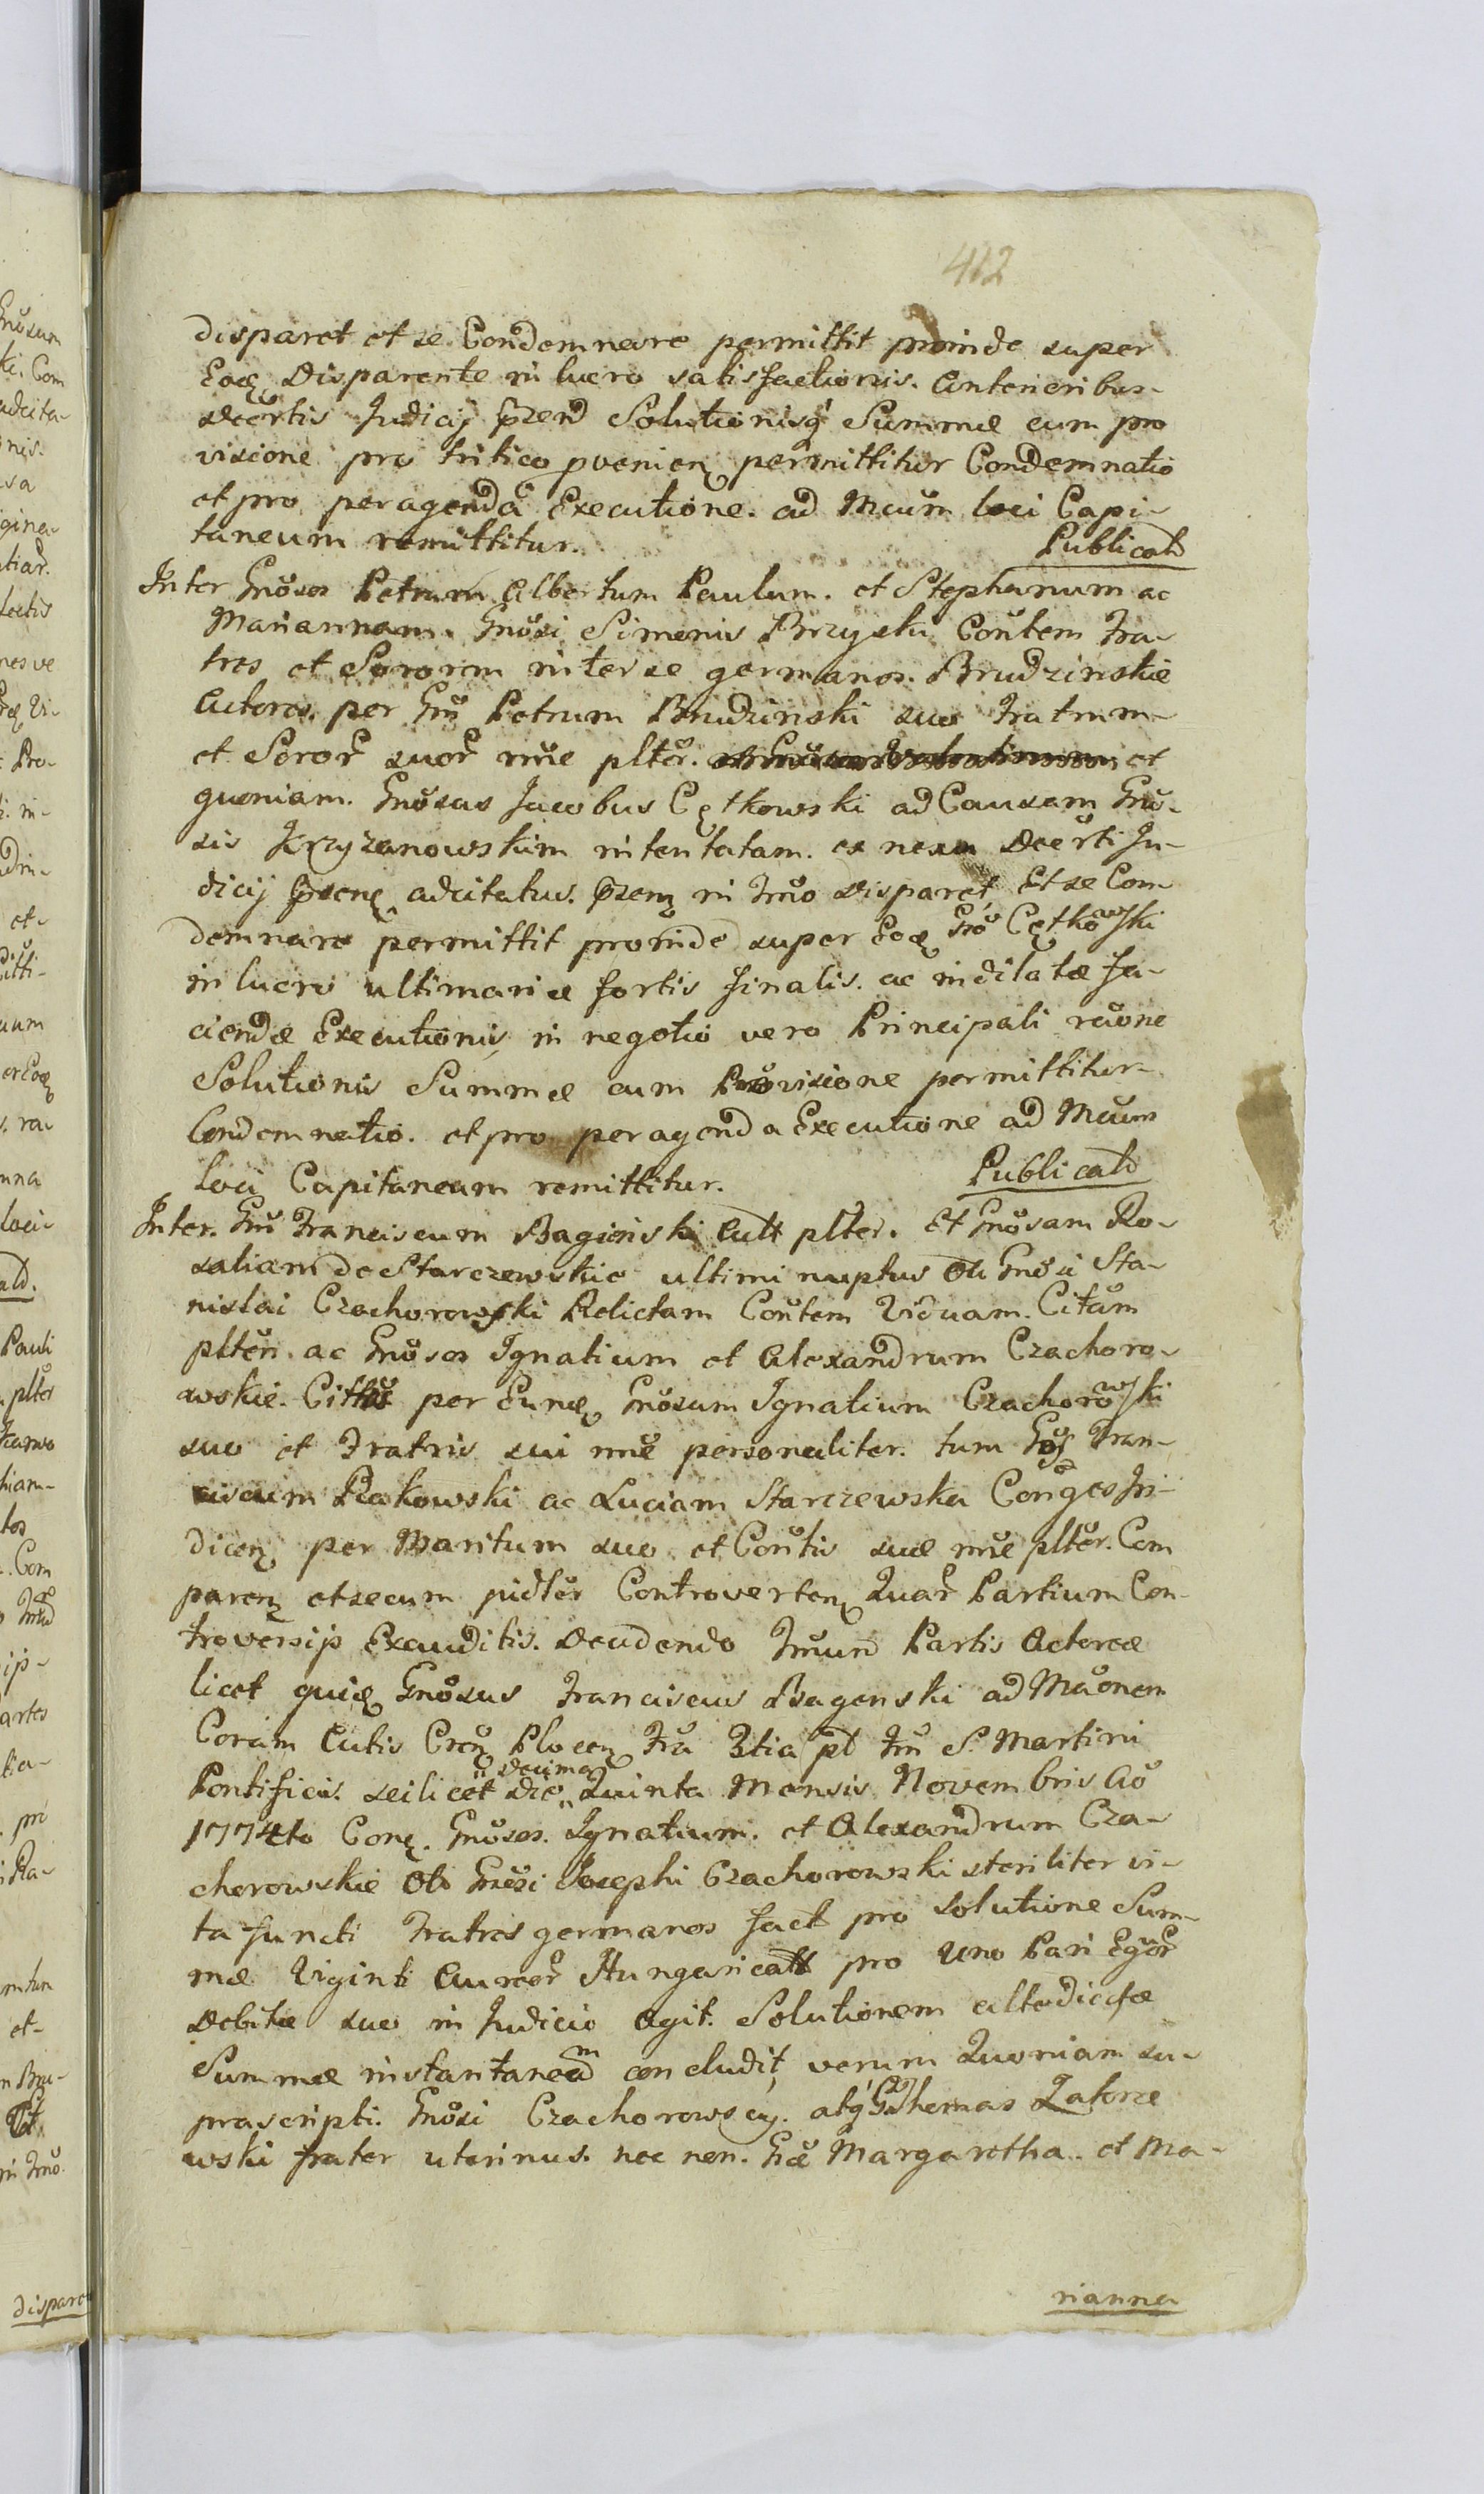 412
disparet et se Condemnare permittit proinde super
Eoq̃ Disparente in lucro satisfactionis. Anterioribus
Decrtis Judicij p̃zen̄d Solutionisq̃ Summæ cum pro
visione pro tritico pvenien. permittitur Condemnatio
et pro peragenda Executione. ad Mcum loci Capi-
taneum remittitur.
Publicatū
Inter Gnosos Petrum Albertum Paulum. et Stephanum ac
Mariannam. Gnosi Simonis Brzyski Coñtem Fra-
tres et Sororem inter se germanos. Brudzinskie
Actores. per Gñ Petrum Brudzinski suo Fratrum
et Soror̃ suor̃ nñe plter. et
quoniam. Gnosus Jacobus Cętkowski ad Causam Gno-
sis Krzyzanowskim intentatam. ex nexu Decrti Ju-
dicij p̃zen̄ adcitatus. p̃zen̄ in Tm̃o disparet, Et se Con
demnare permittit proinde super Eoq̃ Gñō Cętkowski
in lucro ultimariæ fortis finalis. ac indilatæ fa-
ciendæ Executionis, in negotio vero Principali raõne
Solutionis Summæ cum Provisione permittitur
Condemnatio. et pro peragenda Executione ad Mcum
loci Capitaneum remittitur.
Publicatū
Inter. Gñ Franciscum Bagienski Actt plter. Et Gnosam Ro-
saliam de Starczewskie ultimi nuptus Oli Gnosi Sta-
nislai Czachorowski Relictam Coñtem Viduam. Citam
plten. ac Gnosos Ignatium et Alexandrum Czachoro-
wskie. Cittos per Eunq̃ Gnosum Ignatium Czachorowski
suo et Fratris sui nñe personaliter. tum Gos Fran-
ciscum Rakowski ac Luciam Starczewska Conges In-
dicen̄ per Maritum suo et Coñtis suæ nñe plter. Com
paren̄ et secum judler Controverten̄ Quar̃ Partium Con-
troversijs Exauditis. Decidendo Tmum Partis Actoreæ
licet quidē Gnosus Franciscus Bagenski ad Maõnem
Coram Actis Cren̄ Plocen̄ Fra 3tia pt̃ Fm̃ S. Martini
Pontificis. scilicet die „Decima„ Quinta Mensis Novembris Aõ
1774to Con̄. Gnosos. Ignatium. et Alexandrum Cza-
chorowskie Oli Gnosi Josephi Czachorowski steriliter vi-
ta functi Fratres germanos fact̃ pro solutione Sum-
mæ Viginti Aureor̃ Hungaricatt pro Uno Pari Eqor̃
Debitæ suo in Judicio Agit. Solutionem altedictæ
Summæ instantaneam concludit, verum Quoniam su-
prascripti. Gnosi Czachorowscy. atq̃ G. Thomas Zatorze
wski frater uterinus. nec non. Gæ Margaretha. et Ma-
rianna